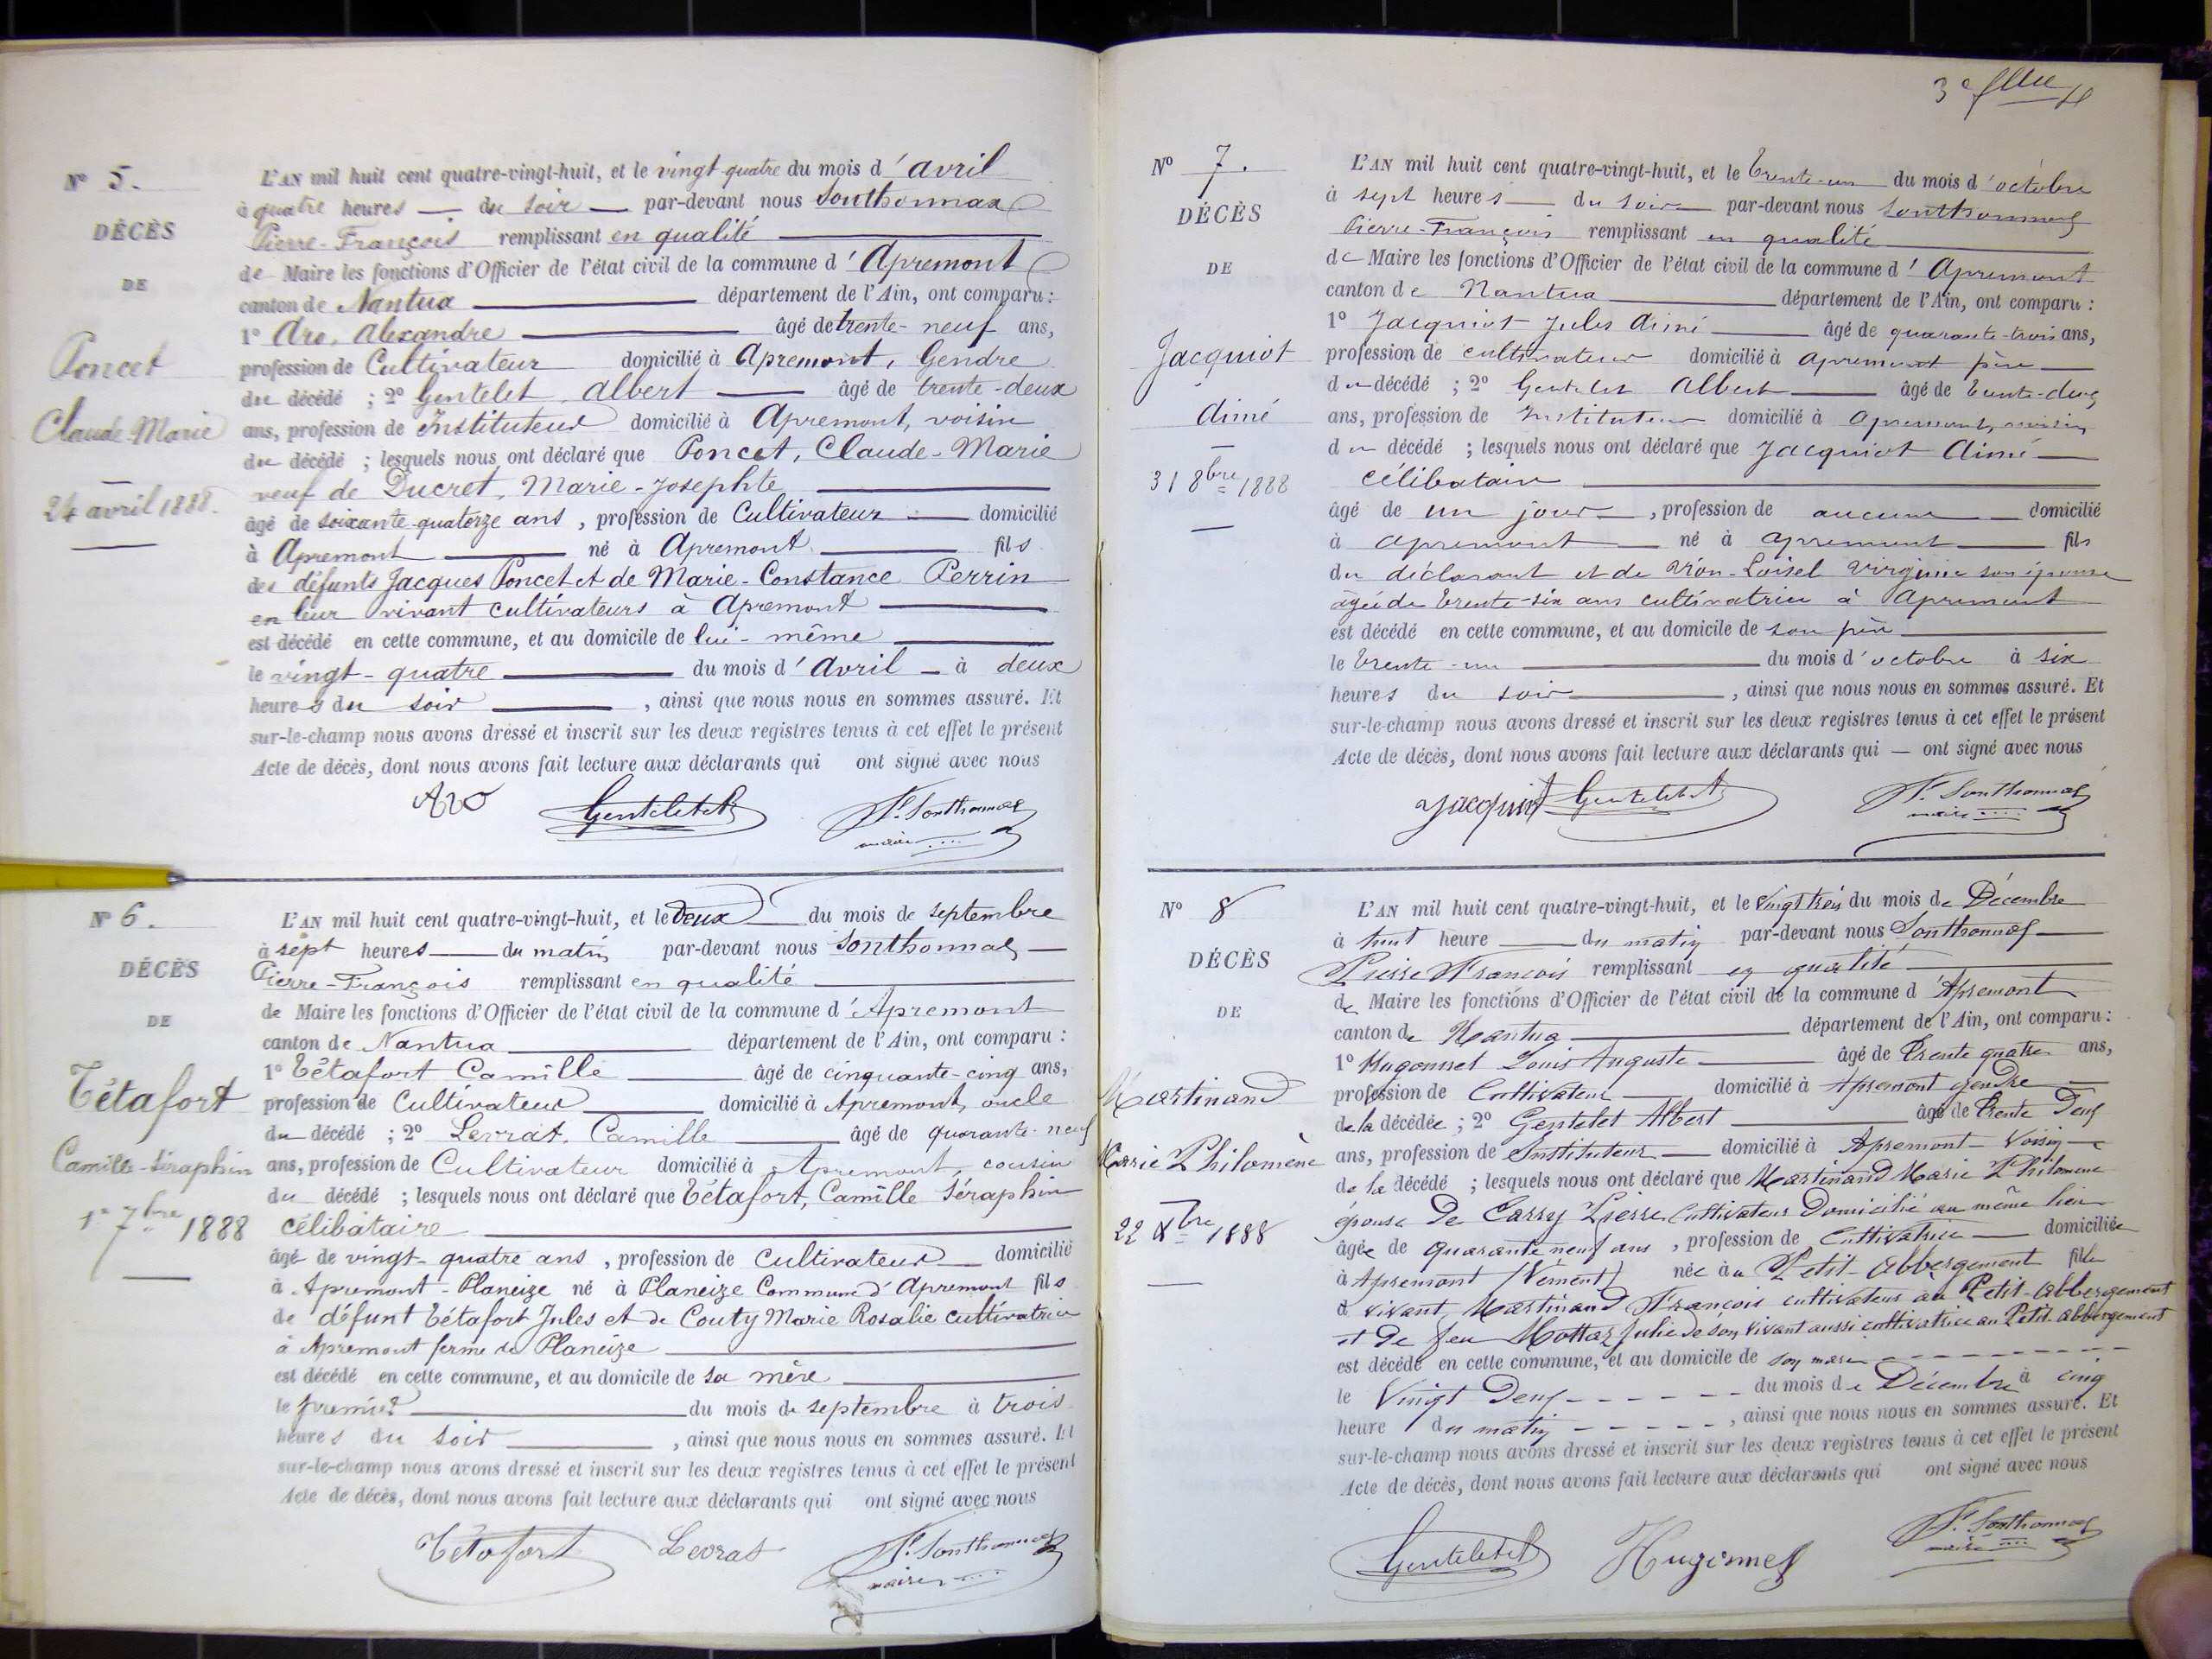 N° 5.
DÉCÈS
DE
Poncet
Claude-Marie
24 avril 1888.
L'AN mil huit cent quatre-vingt-huit, et le vingt-quatre du mois d'avril
à quatre heures du soir par-devant nous Sonthonnax
Pierre-François remplissant en qualité
de Maire les fonctions d'Officier de l'état civil de la commune d'Apremont
canton de Nantua département de l'Ain, ont comparu :
1° Aro, Alexandre âgé de trente-neuf ans,
profession de Cultivateur domicilié à Apremont, Gendre
du décédé ; 2° Gentelet Albert âgé de trente-deux
ans, profession de Instituteur domicilié à Apremont, voisin
du décédé ; lesquels nous ont déclaré que Poncet, Claude-Marie
veuf de Ducret, Marie-Josephte
âgé de soixante-quatorze ans, profession de Cultivateur domicilié
à Apremont né à Apremont fils
des défunts Jacques Poncet et de Marie-Constance Perrin
en leur vivant cultivateurs à Apremont
est décédé en cette commune, et au domicile de lui-même
le vingt-quatre du mois d'avril à deux
heures du soir, ainsi que nous nous en sommes assuré. Et
sur-le-champ nous avons dressé et inscrit sur les deux registres tenus à cet effet le présent
Acte de décès, dont nous avons fait lecture aux déclarants qui ont signé avec nous
Aro Gentelet A P. Sonthonnax
maire
N° 6.
DÉCÈS
DE
Tétafort
Camille-Séraphin
1er 7bre 1888
L'AN mil huit cent quatre-vingt-huit, et le deux du mois de septembre
à sept heures du matin par-devant nous Sonthonnax
Pierre-François remplissant en qualité
de Maire les fonctions d'Officier de l'état civil de la commune d'Apremont
canton de Nantua département de l'Ain, ont comparu :
1° Tétafort Camille âgé de cinquante-cinq ans,
profession de Cultivateur domicilié à Apremont, oncle
du décédé ; 2° Levrat, Camille âgé de quarante-neuf
ans, profession de Cultivateur domicilié à Apremont, cousin
du décédé ; lesquels nous ont déclaré que Tétafort, Camille Séraphin
célibataire
âgé de vingt-quatre ans, profession de cultivateur domicilié
à Apremont-Planeize né à Planeize Commune d'Apremont fils
de défunt Tétafort Jules et de Couty Marie Rosalie cultivatrice
à Apremont ferme de Planeize
est décédé en cette commune, et au domicile de sa mère
le premier du mois de septembre à trois
heures du soir, ainsi que nous nous en sommes assuré. Et
sur-le-champ nous avons dressé et inscrit sur les deux registres tenus à cet effet le présent
Acte de décès, dont nous avons fait lecture aux déclarants qui ont signé avec nous
Tétafort Levrat P. Sonthonnax
maire
3e
N° 7.
DÉCÈS
DE
Jacquiot
Aimé
31 8bre 1888
L'AN mil huit cent quatre-vingt-huit, et le trente-un du mois d'octobre
à sept heures du soir par-devant nous Sonthonnax
Pierre-François remplissant en qualité
de Maire les fonctions d'Officier de l'état civil de la commune d'Apremont
canton de Nantua département de l'Ain, ont comparu :
1° Jacquiot Jules Aimé âgé de quarante-trois ans,
profession de cultivateur domicilié à Apremont père
du décédé ; 2° Gentelet Albert âgé de trente-deux
ans, profession de Instituteur domicilié à Apremont, voisin
du décédé ; lesquels nous ont déclaré que Jacquiot Aimé
célibataire
âgé de un jour, profession de aucune domicilié
à Apremont né à Apremont fils
du déclarant et de Loisel Virginie son épouse
âgée de trente-six ans cultivatrice à Apremont
est décédé en cette commune, et au domicile de son père
le trente-un du mois d'octobre à six
heures du soir, ainsi que nous nous en sommes assuré. Et
sur-le-champ nous avons dressé et inscrit sur les deux registres tenus à cet effet le présent
Acte de décès, dont nous avons fait lecture aux déclarants qui — ont signé avec nous
Jacquiot Gentelet A P. Sonthonnax
maire
N° 8
DÉCÈS
DE
Martinand
Marie Philomène
22 Xbre 1888
L'AN mil huit cent quatre-vingt-huit, et le Vingt trois du mois de Décembre
à huit heure du matin par-devant nous Sonthonnax
Pierre François remplissant en qualité
de Maire les fonctions d'Officier de l'état civil de la commune d'Apremont
canton de Nantua département de l'Ain, ont comparu :
1° Hugonnet Louis Auguste âgé de trente quatre ans,
profession de Cultivateur domicilié à Apremont gendre
de la décédée ; 2° Gentelet Albert âgé de trente Deux
ans, profession de Instituteur domicilié à Apremont Voisin
de la décédé ; lesquels nous ont déclaré que Martinand Marie Philomène
épouse De Carry Pierre Cultivateur Domicilié au même lieu
âgée de quarante neuf ans, profession de Cultivatrice domiciliée
à Apremont née au Petit-Abbergement fille
d vivant Martinand François cultivateur au Petit-Abbergement
et De feu Mottaz Julie de son vivant aussi cultivatrice au Petit-Abbergement
est décédé en cette commune, et au domicile de son mari
le Vingt Deux du mois de Décembre à cinq
heure du matin, ainsi que nous nous en sommes assuré. Et
sur-le-champ nous avons dressé et inscrit sur les deux registres tenus à cet effet le présent
Acte de décès, dont nous avons fait lecture aux déclarants qui ont signé avec nous
Gentelet A Hugonnet P. Sonthonnax
maire